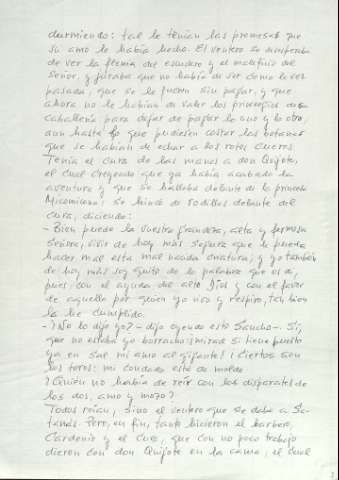 durmiendo: tal le tenían las promesas que
su amo le había hecho. El ventero se desesperaba
de ver la flema del escudero y el maleficio del
señor, y juraba que no había de ser como la vez
pasada, que se le fueron sin pagar, y que
ahora no le habían de valer los privilegios de su
caballería para dejar de pagar lo uno y lo otro,
aun hasta lo que pudiesen costar las botanas
que se habían de echar a los rotos cueros.
Tenía el cura de las manos a don Quijote,
el cual creyendo que ya había acabado la
aventura y que se hallaba delante de la princesa
Micomicona, se hincó de rodillas delante del
cura, diciendo:
- Bien puede la vuestra grandeza, alta y fermosa
señora, vivir de hoy más segura que le pueda
hacer mal esta mal nacida criatura; y yo también
de hoy más soy quito de la palabra que os di,
pues con el ayuda del alto Dios y con el favor
de aquella por quien yo vivo y respiro, tan bien
la he cumplido.
- ¿No lo dije yo? - dijo oyendo esto Sancho -. Sí,
que no estaba yo borracho: ¡mirad si tiene puesto
ya en sal mi amo al gigante! ¡Ciertos son
los toros: mi condado está de molde!
¿Quién no había de reír con los disparates de
los dos, amo y mozo?
Todos reían, sino el ventero que se daba a Sa-
tanás. Pero, en fin, tanto hicieron el barbero,
Cardenio y el cura, que con no poco trabajo
dieron con don Quijote en la cama, el cual